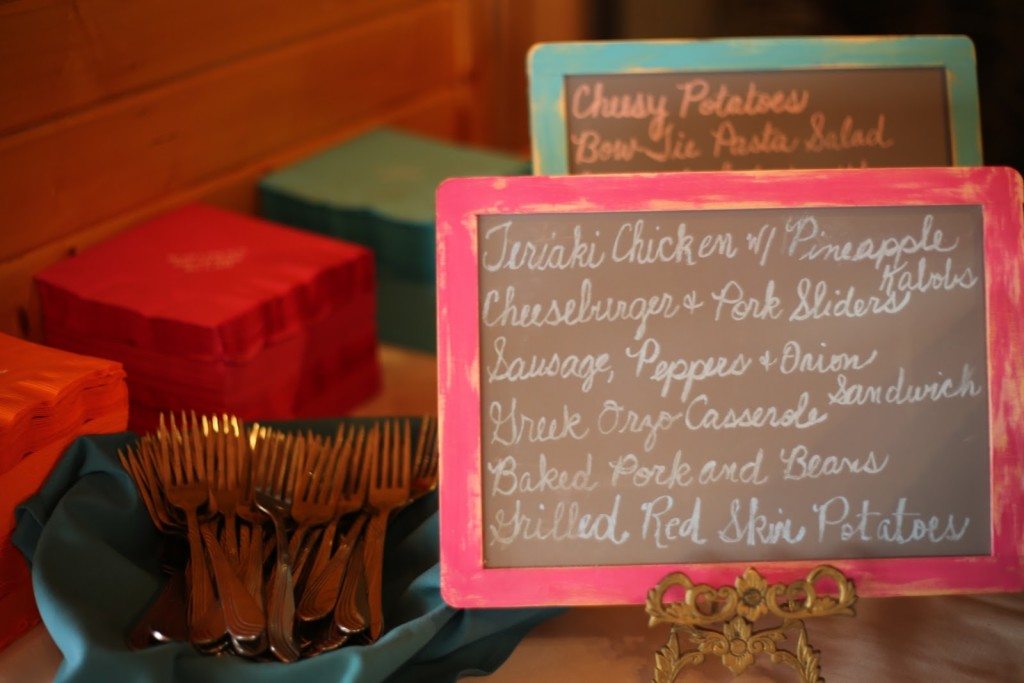 Cheesy Potatoes
Bow Tie Pasta Salad
Teriaki Chicken w/ Pineapple
Kabobs
Cheeseburger + Pork Sliders
Sausage, Peppers + Onion
Sandwich
Greek Orzo Casserole
Baked Pork and Beans
Grilled Red Skin Potatoes